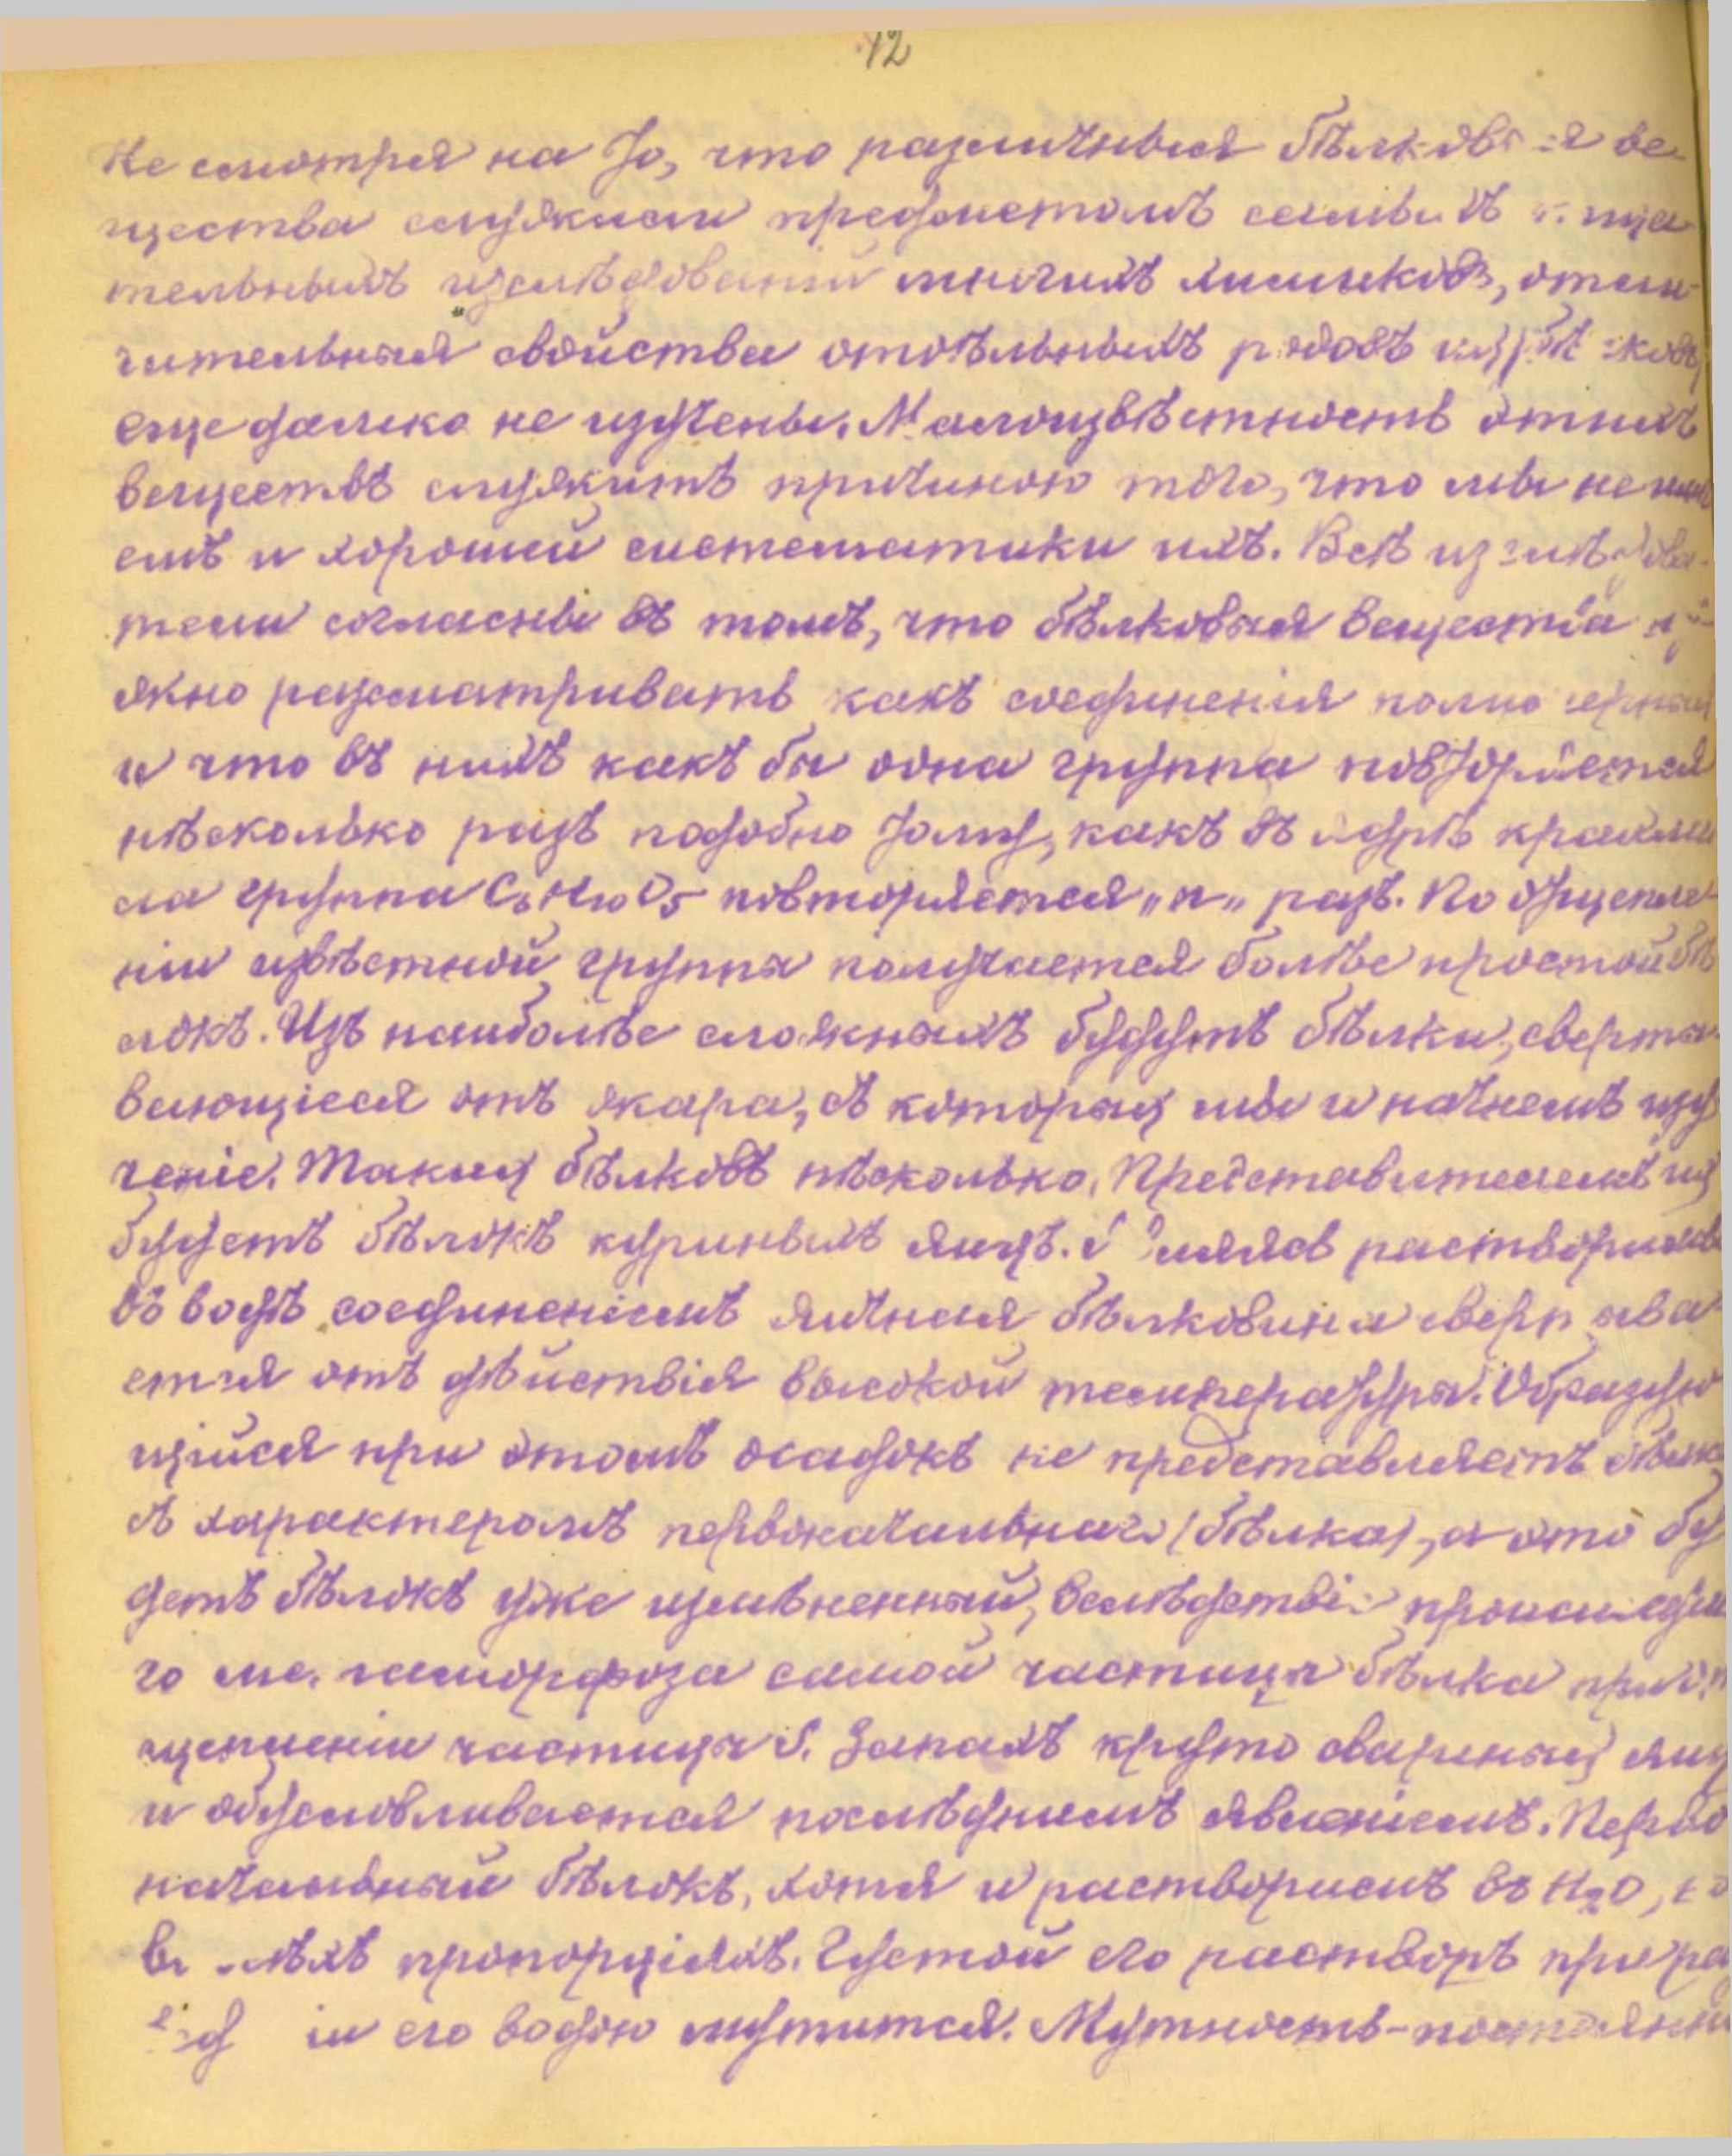 12
Не смотря на то, что различныя бѣлковыя ве-
щества служили предметомъ самыхъ тща-
тельныхъ изслѣдованій многихъ химиковъ, отли-
чительныя свойства отдѣльныхъ родовъ изъ бѣлковъ
еще далеко не изучены. Малоизвѣстность этихъ
веществъ служитъ причиною того, что мы не имѣ
емъ и хорошей систематики ихъ. Всѣ изслѣдова-
тели согласны въ томъ, что бѣлковыя вещества мо-
жно разсматривать какъ соединенія полимерныя
и что въ нихъ какъ бы одна группа повторяется
нѣсколько разъ подобно тому, какъ въ ядрѣ крахма
ла группа C6H10O5 повторяется „n„ разъ. По отщепле-
ніи извѣстной группы получается болѣе простой бѣ
локъ. Изъ наиболѣе сложныхъ будутъ бѣлки, сверты-
вающіеся отъ жара, съ которыхъ мы и начнемъ изу
ченіе. Такихъ бѣлковъ нѣсколько. Представителемъ ихъ
будетъ бѣлокъ куриныхъ яицъ. Являясь растворимымъ
въ водѣ соединеніемъ яичная бѣлковина свертыва-
ется отъ дѣйствія высокой температуры. Образую
щійся при этомъ осадокъ не представляетъ бѣлка
съ характеромъ первоначальнаго (бѣлка), а это бу
детъ бѣлокъ уже измѣненный, вслѣдствіе происшедша
го метаморфоза самой частицы бѣлка при от
щепленіи частицы S. Запахъ круто свареныхъ яицъ
и обусловливается послѣднимъ явленіемъ. Перво
начальный бѣлокъ, хотя и растворимъ въ H2O, но
въ пропорціяхъ. Густой его растворъ при ра
его водою мутится. Мутность-постоянна